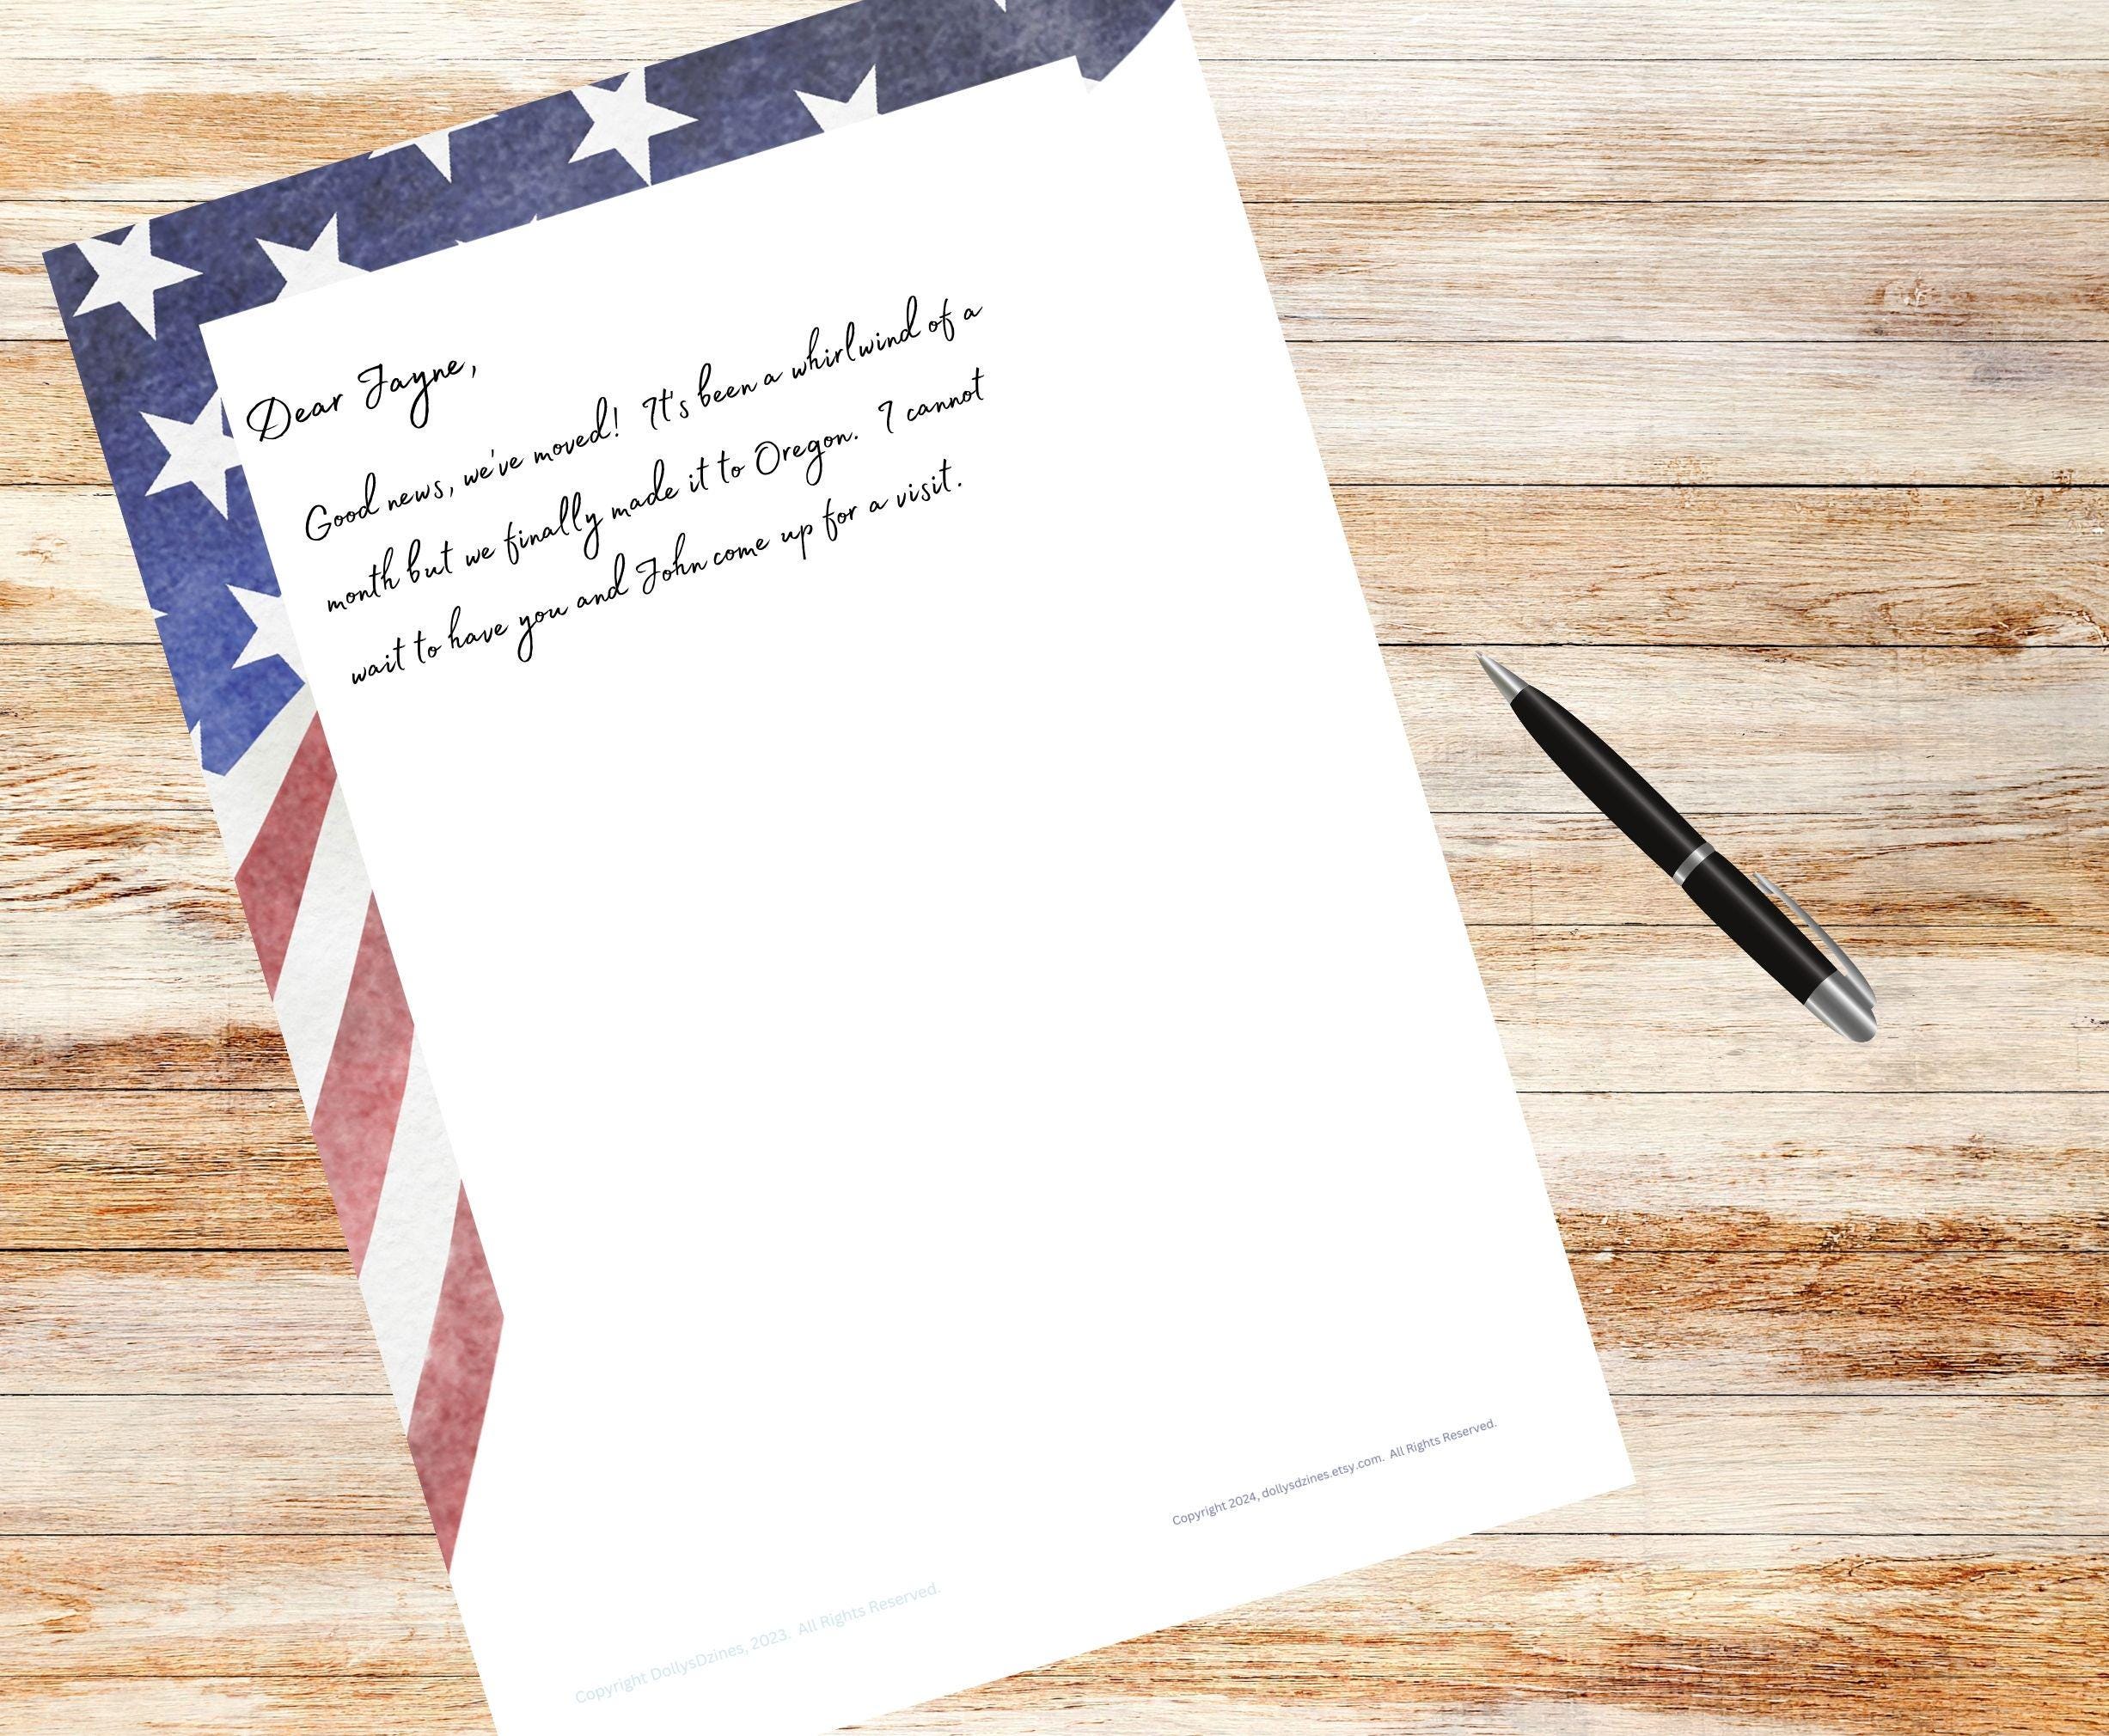 Dear Jayne,
Good news, we've moved!  It's been a whirlwind of a
month but we finally made it to Oregon.  I cannot
wait to have you and John come up for a visit.
Copyright 2024, dollysdzines.etsy.com.  All Rights Reserved.
Copyright DollysDzines, 2023.  All Rights Reserved.